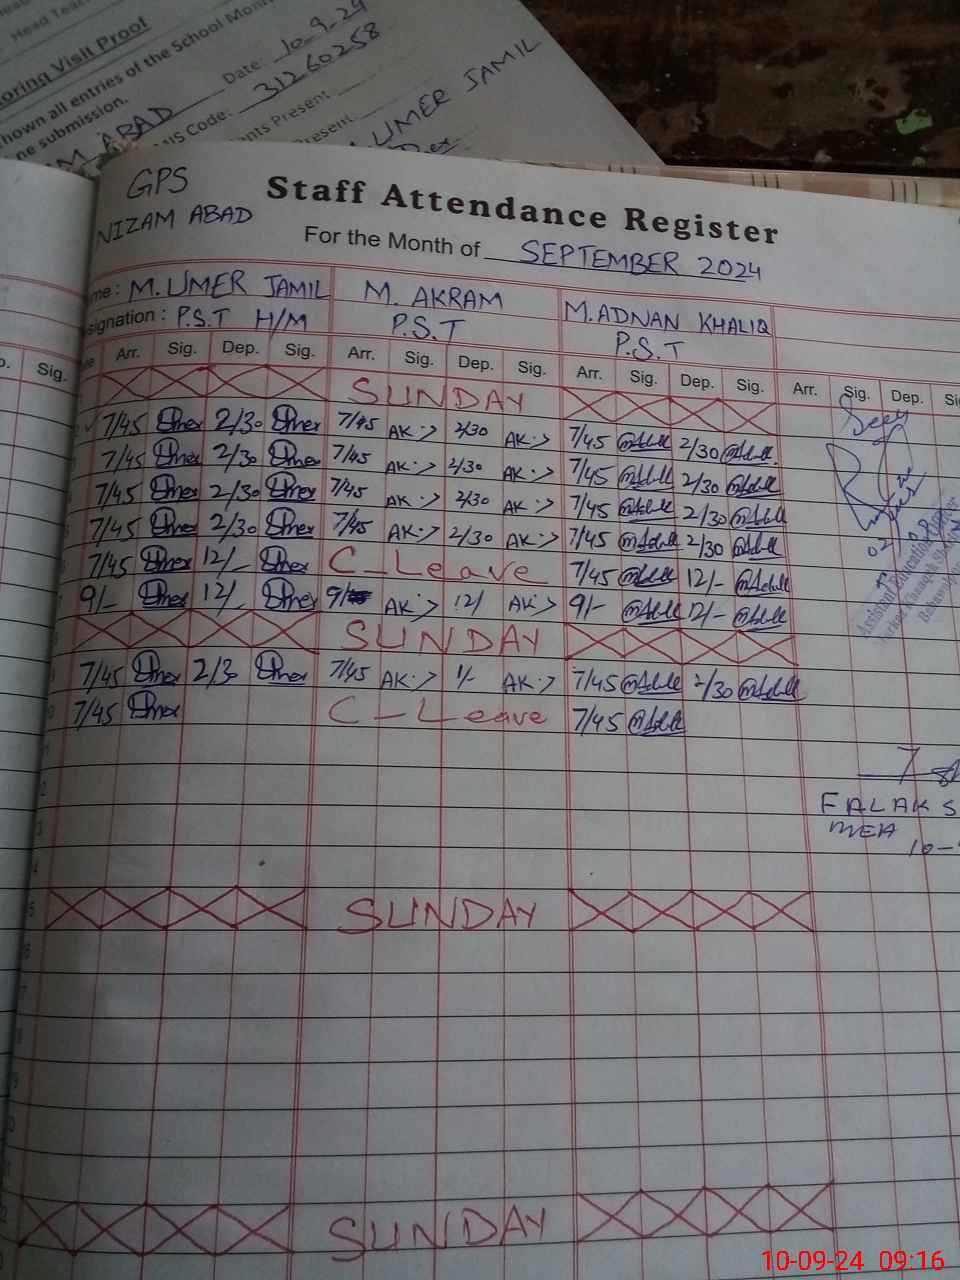 Head Teac
oring Visit Proof
hown all entries of the School Mon
ne submission.
Date: 10-9-24
M ABAD
MIS Code: 31260258
nts Present
Present:
UMER JAMIL
GPS
NIZAM ABAD
Staff Attendance Register
For the Month of SEPTEMBER 2024
me: M. UMER JAMIL M. AKRAM M. ADNAN KHALIQ
signation: P.S.T H/M P.S.T P.S.T
Sig. Arr. Sig. Dep. Sig. Arr. Sig. Dep. Sig. Arr. Sig. Dep. Sig. Arr. Sig. Dep. Si
SUNDAY
7/45 Umer 2/30 Umer 7/45 AK 2/30 AK 7/45 2/30
7/45 Umer 2/30 Umer 7/45 AK 2/30 AK 7/45 2/30
7/45 Umer 2/30 Umer 7/45 AK 2/30 AK 7/45 2/30
7/45 Umer 2/30 Umer 7/45 AK 2/30 AK 7/45 2/30
7/45 Umer 12/- Umer C-Leave 7/45 12/-
9/- Umer 12/- Umer 9/ AK 12/ AK 9/- 12/-
SUNDAY
7/45 Umer 2/3 Umer 7/45 AK 1/- AK 7/45 2/30
7/45 Umer C-Leave 7/45
SUNDAY
SUNDAY
Seen
02
Assistant Education
FALAK S
MEA
10-
10-09-24 09:16